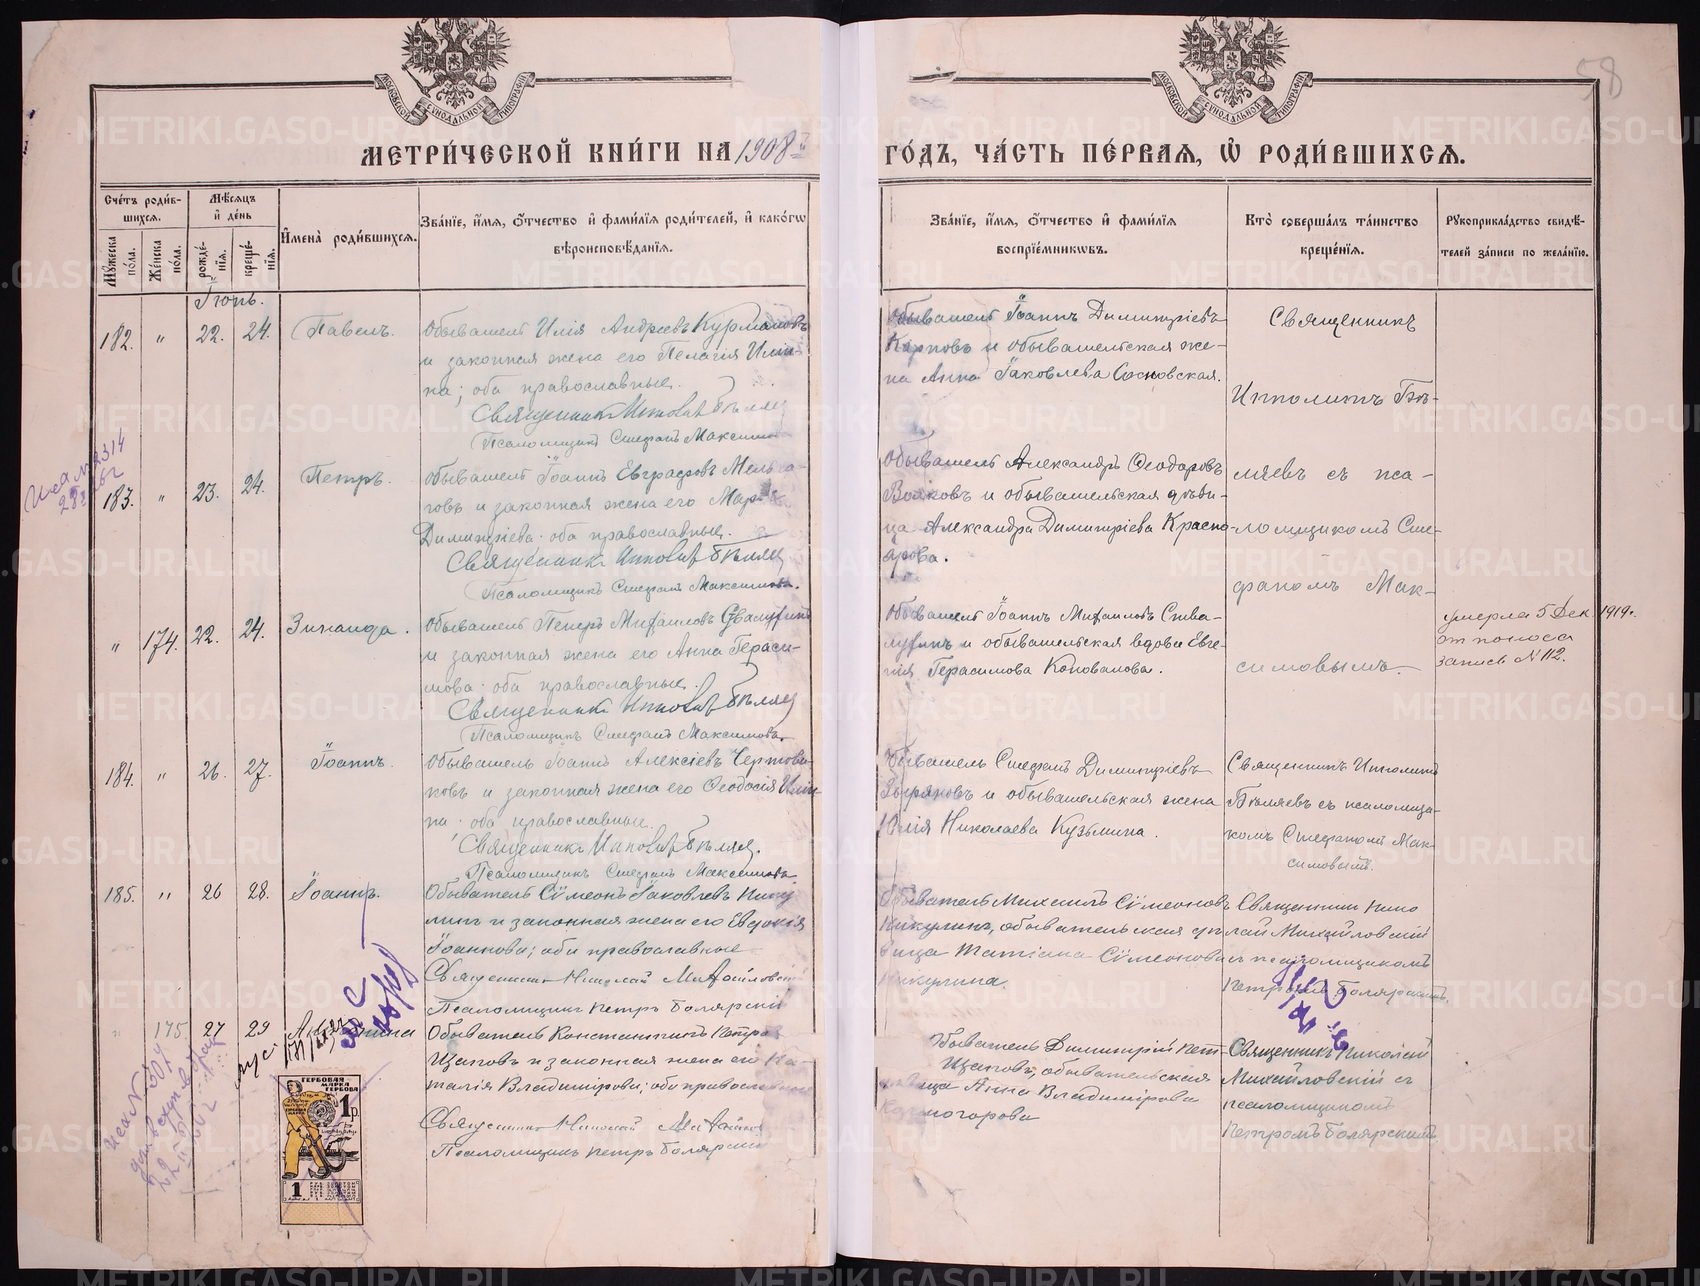 МОСКОВСКОЙ СѴНОДАЛЬНОЙ ТИПОГРАФІИ
МОСКОВСКОЙ СѴНОДАЛЬНОЙ ТИПОГРАФІИ
58
МЕТРИ́ЧЕСКОЙ КНИ́ГИ НА 1908й
ГО́ДЪ, ЧА́СТЬ ПЕ́РВАЯ, Ѡ РОДИ́ВШИХСЯ.
Сче́тъ роди́в-
шихся.
Мѣ́сяцъ
и҆ де́нь
Му́жеска по́ла.
Же́нска по́ла.
рожде́-
нїя.
креще́-
нїя.
И҆мена̀ роди́вшихся.
Зва́нїе, и҆́мя, ѻ҆́тчество и҆ фами́лїя роди́телей, и҆ како́гѡ
вѣроисповѣ́данїя.
Зва́нїе, и҆́мя, ѻ҆́тчество и҆ фами́лїя
воспрїе́мникѡвъ.
Кто̀ соверша́лъ та́инство
креще́нїя.
Рукоприкла́дство свидѣ́-
телей за́писи по жела́нїю.
Іюнь.
182. " 22. 24. Павелъ.
Обыватель Илія Андреевъ Курмановъ
и законная жена его Пелагія Иліи-
на; оба православные.
Священникъ Ипполитъ Бѣляев
Псаломщикъ Стефанъ Максимов
Обыватель Іоаннъ Димитріевъ
Карповъ и обывательская же-
на Анна Іаковлева Сосновская.
Священникъ
Ипполитъ Бѣ-
183. " 23. 24. Петръ.
Обыватель Іоаннъ Евграфовъ Мель
говъ и законная жена его
Димитріева; оба православные.
Священникъ Ипполит Бѣляев
Псаломщикъ Стефанъ Максимовъ.
Обыватель Александръ Ѳеодоровъ
Волковъ и обывательская дѣви-
ца Александра Димитріева Краспо-
ярова.
ляевъ съ пса-
ломщикомъ Сте-
фаномъ Мак-
симовымъ
" 174. 22. 24. Зинаида.
Обыватель Петръ Михаиловъ
и законная жена его Анна Гераси-
мова; оба православные.
Священникъ Ипполит Бѣляев
Псаломщикъ Стефанъ Максимовъ
Обыватель Іоаннъ Михаиловъ
и обывательская вдова Евге-
нія Герасимова Коновалова.
умерла 5 Дек. 1919 г.
от поноса
запись № 112.
184. " 26. 27. Іоаннъ.
Обыватель Іоаннъ Алексіевъ
ковъ и законная жена его Ѳеодосія Иліи-
на; оба православные.
Священникъ Ипполит Бѣляев.
Псаломщикъ Стефанъ Максимовъ
Обыватель Стефанъ Димитріевъ
Зыряновъ и обывательская жена
Юлія Николаева Кузьмина.
Священникъ Ипполитъ
Бѣляевъ съ псаломщи-
комъ Стефаномъ Мак-
симовымъ.
185. " 26 28. Іоаннъ.
Обыватель Сѵмеонъ Іаковлевъ Нику
линъ и законная жена его Евдокія
Іоаннова; оба православные
Священникъ Николай Михайловскій
Псаломщикъ Петръ Болярскій
Обыватель Михаилъ Сѵмеоновъ
Никулинъ, обывательская дѣ
вица Татіана Сѵмеонова
Никулина.
Священник Нико
лай Михайловскій
съ псаломщикомъ
Петромъ Болярскимъ.
" 175 27 29
Обыватель Константинъ Петров
Щаповъ и законная жена его На-
талія Владимірова; оба православные
Священникъ Николай Михайлов
Псаломщикъ Петръ Болярскій
Обыватель Димитрій Пет
Щаповъ, обывательская
дѣвица Анна Владимірова
Священникъ Николай
Михайловскій съ
псаломщикомъ
Петромъ Болярскимъ
ГЕРБОВАЯ
МАРКА
1р
1